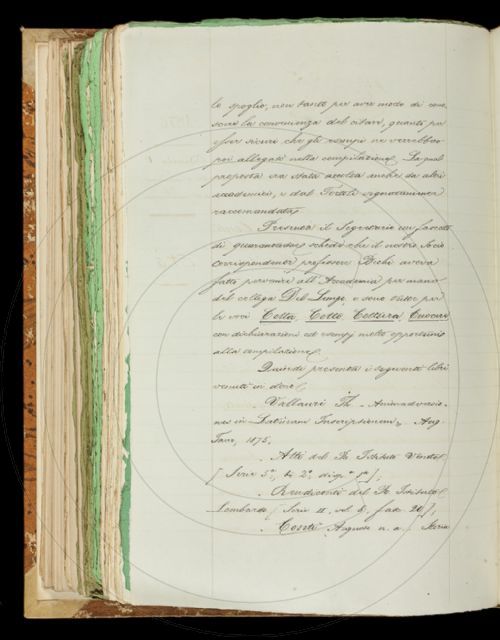 lo spoglio, non tanto per aver modo di cono
scere la convenienza del citare, quanto per
esser sicuri che gli esempi ne verrebbero
poi allegati nella compilazione. La qual
proposta era stata accolta anche da altri
accademici, e dal Tortoli segnatamente
raccomandata.
Presenta il Segretario un fascetto
di quarantadue schede che il nostro Socio
corrispondente professore Bechi aveva
fatti pervenire all'Accademia per mano
del collega Del Lungo, e sono
le voci Cotta, Cotto, Cottura, Cuocere
con dichiarazioni ed esempj molto opportuni
alla compilazione.
Quindi presenta i seguenti libri
venuti in dono:
Vallauri Th. - Animadversio-
nes in Latinam Inscriptionem, Aug.
Taur, 1875.
. Atti del R. Istituto Veneto
[Serie 5ª, to. 2º, disp.ª
. Rendiconti del R. Istituto
Lombardo [Serie II, vol. 8, fasc. 20].
. Conti Augusto n. a. Storia